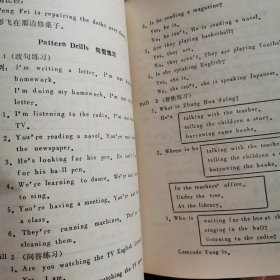 Peng Fei is repairing the desks over there.
彭飞在那边修桌子。
Pattern Drills 句型练习
1 (改句练习)
例: I'm writing a letter, I'm not doing my
homework.
I'm doing my homework, I'm not writing a
letter.
1. I'm listening to the radio, I'm not watching
TV.
2. You're reading a novel, You're not reading
the newspaper.
3. He's looking for his pen, He isn't looking
for his ball pen.
4. We're learning to dance, We're not learning
to sing.
5. You're having a meeting, You're not having
a class.
6. They're running machines, They're not
cleaning them.
Drill 2 (问答练习)
1. Are you watching the TV English
Yes, I am.
2. Is he reading a magazine?
Yes, he is.
No, he isn't, He is reading a novel.
3. Are they playing basketball?
Yes, they are.
No, they aren't, They are playing football
4. Is she speaking English?
Yes, she is.
No, she isn't, she is speaking Japanese.
Drill 3 (替换练习)
1. What is Zhang Hua doing?
He's
talking with the teacher.
telling the children a story.
borrowing some books.
2. Where is he
talking with the teacher
telling the children a
borrowing the books
In the teachers' office.
Under the tree.
At the library.
3. Who is
waiting for the bus at
singing in the hall?
listening to the radio?
Comrade Yang is.